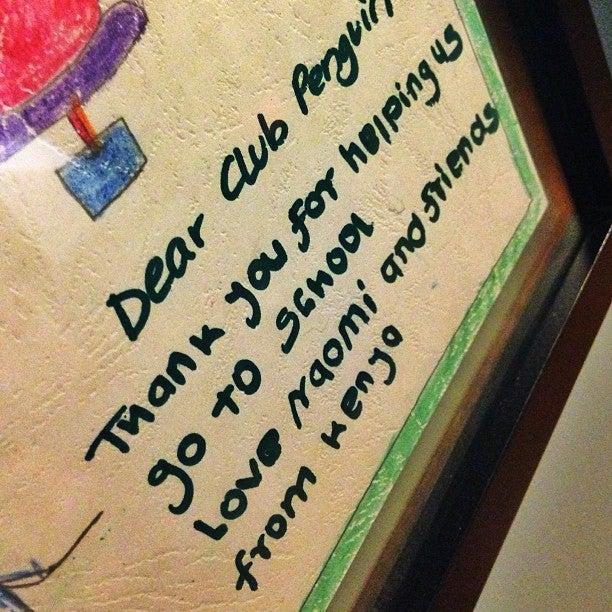 Dear Club Penguin
Thank you for helping us
go to school
Love Naomi and friends
from Kenya